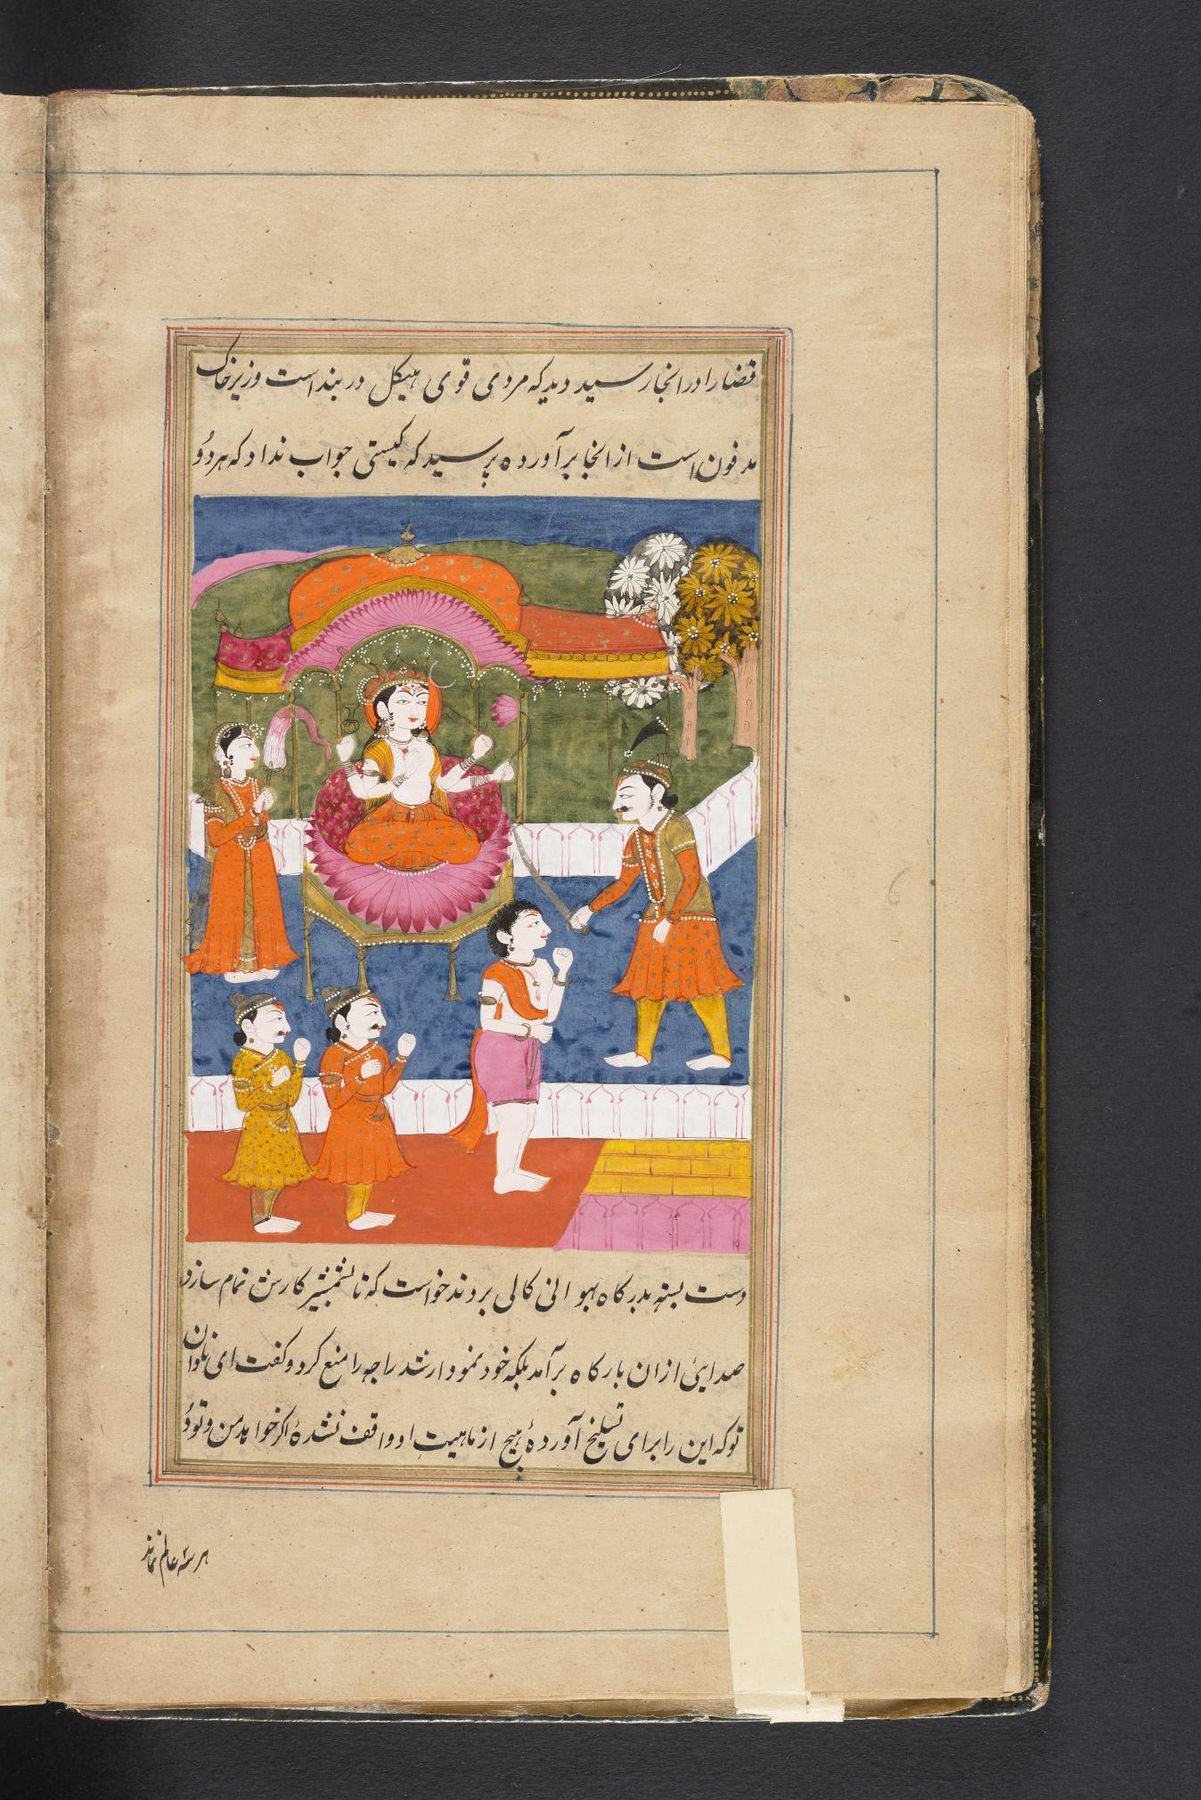 قضارا در انجا رسید دید که مردی قوی هیکل در بند است و زیر خاک
مدفون است از انجا بر آورده پرسید که کیستی جواب نداد که هر دو
دست بسته بدرگاه بهوانی کالی بردند خواست که تا بشمشیر کارش تمام سازد
صدایی از ان بارگاه برآمد بلکه خود نمودار شد راجه را منع کرد و گفت ای نادان
تو که این را برای تسلیخ آوردهٔ هیچ از ماهیت او واقف نشدهٔ اگر خواهد من و تو و
هر سه عالم نماند